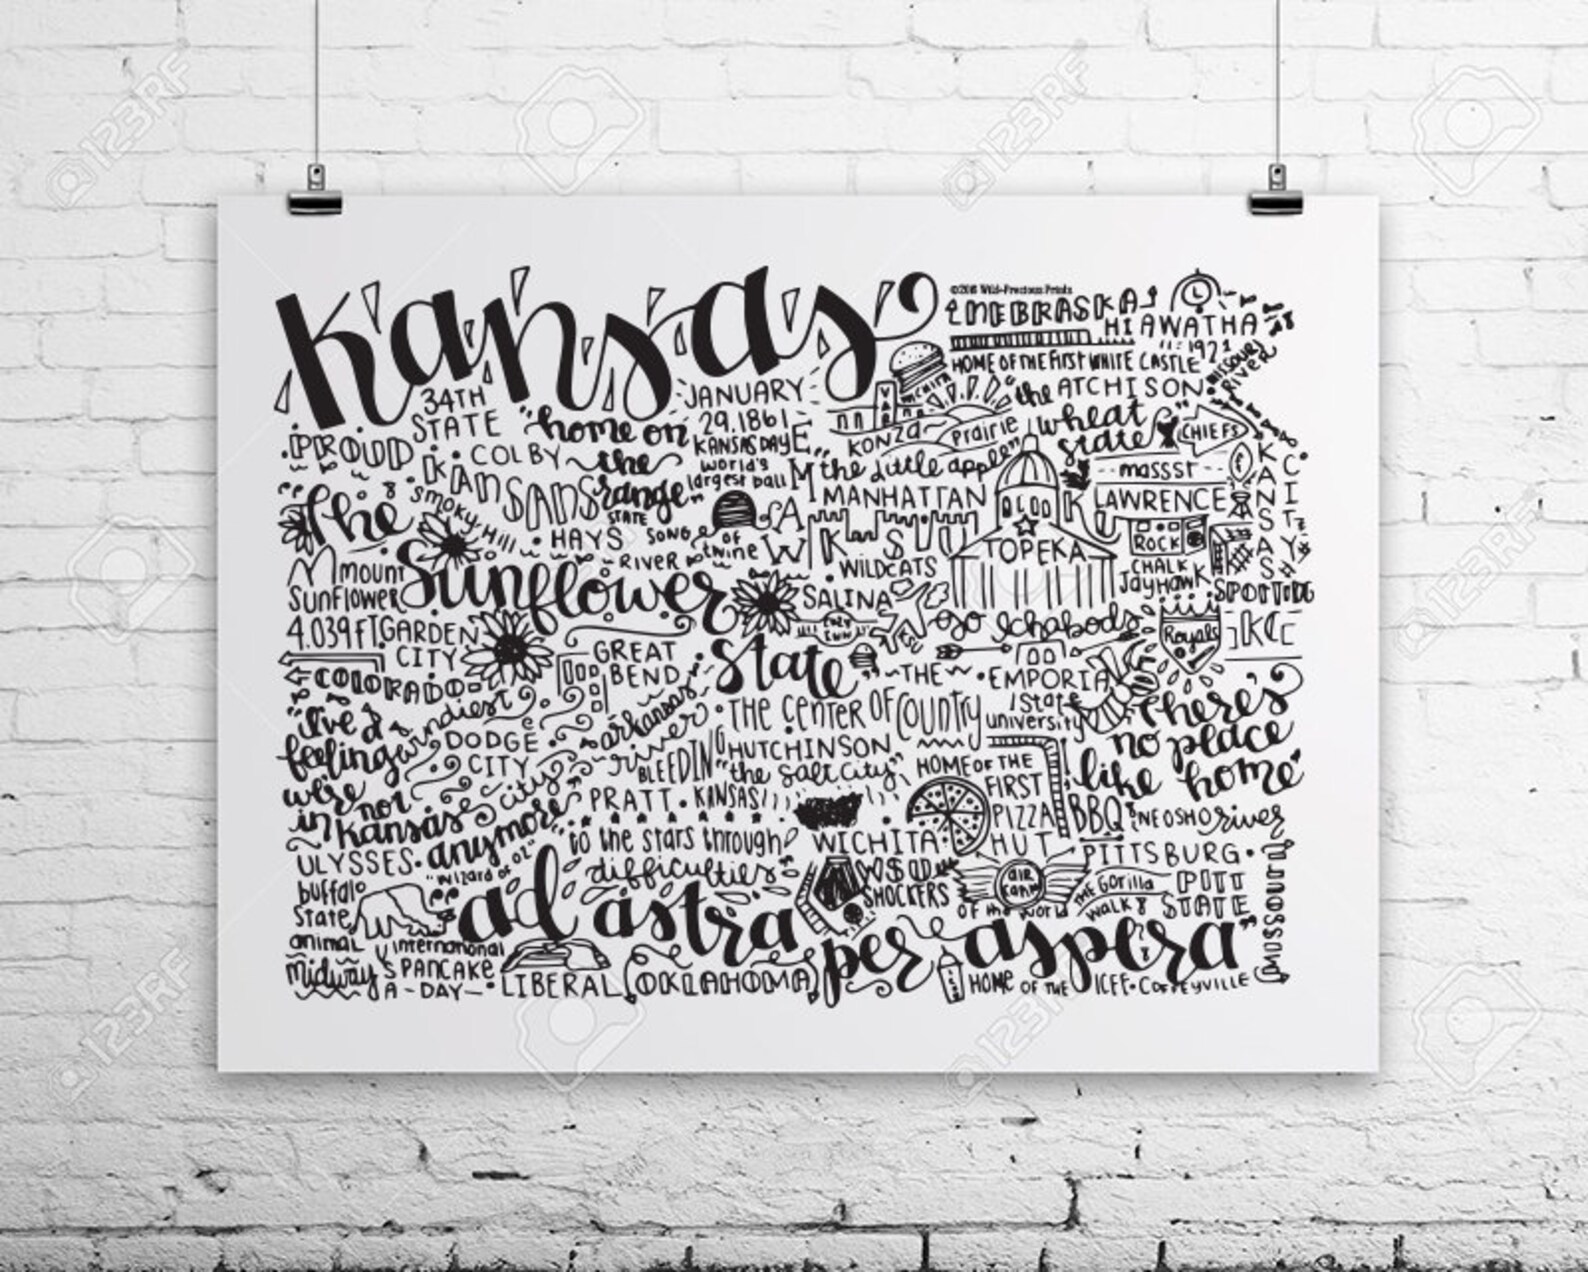 Kansas
©2015 Wild+Precious Prints
NEBRASKA
HIAWATHA
HOME OF THE FIRST WHITE CASTLE
1921
MISSOURI RIVER
34TH
STATE
JANUARY
29.1861
KANSAS DAY
WICHITA
the ATCHISON
"home on
the
range"
STATE
SONG
KONZA
Prairie
"wheat
state"
CHIEFS
PROUD
KANSANS
COLBY
world's
largest ball
OF
twine
"the little apple"
MANHATTAN
EMAW
KSU
WILDCATS
massst
LAWRENCE
KANSAS
CITY
The
Sunflower
State
SMOKY Hill
RIVER
HAYS
TOPEKA
ROCK
CHALK
JAYHAWK
SPORTING
KC
Royals
MOUNT
SUNFLOWER
4,039 FT
GARDEN
CITY
COLORADO
SALINA
GO Ichabods
GREAT
BEND
THE
EMPORIA
State
university
"there's
no place
like home"
"I've a
feeling
we're
not
in Kansas
anymore"
"wizard of oz"
windiest
DODGE
CITY
city
arkansas
river
THE CENTER OF COUNTRY
BLEEDING
KANSAS
HUTCHINSON
"the salt city"
HOME OF THE
FIRST
PIZZA
HUT
BBQ
NEOSHO river
PRATT
to the stars through
difficulties
WICHITA
WSU
SHOCKERS
PITTSBURG
ULYSSES
buffalo
state
animal
AIR
CAPITAL
OF the world
THE Gorilla
WALK
PITT
STATE
MISSOURI
ad astra
per aspera"
midway
USA
international
PANCAKE
DAY
LIBERAL
OKLAHOMA
HOME OF THE ICEE
COFFEYVILLE
123RF